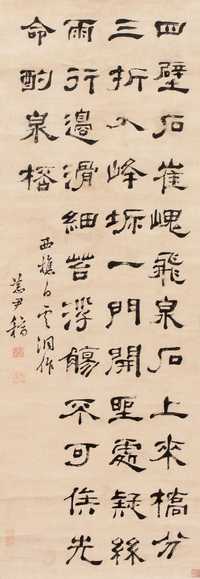 四壁石崔嵬飛泉石上來橋分
三折入峰坼一門開望處疑絲
雨行邊滑細苔浮觴不可俟先
命酌泉桮
西樵白雲洞作